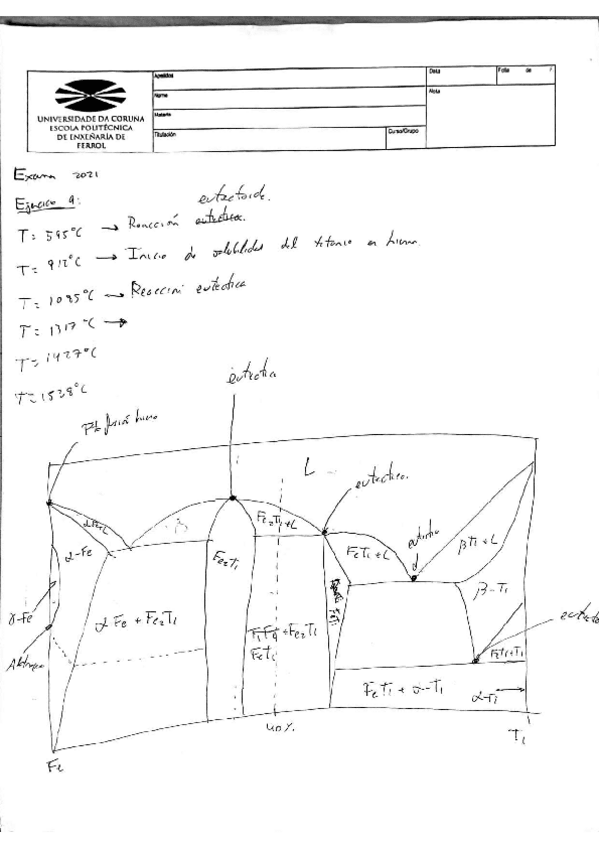 UNIVERSIDADE DA CORUÑA
ESCOLA POLITÉCNICA
DE ENXEÑARÍA DE
FERROL
Apelidos
Data
Folla de /
Nome
Nota
Materia
Titulación
Curso/Grupo
Exame 2021
Ejercicio 9:
eutectoide.
T = 595°C → Reacción eutectica.
T = 912°C → Inicio de solubilidad del titanio en hierro.
T = 1085°C → Reacción eutectica
T = 1317°C →
T = 1427°C
T = 1538°C
eutectica
Pto fusión hierro
L
eutectico.
α+L
β
Fe2Ti+L
eutectico
α-Fe
Fe2Ti
FeTi+L
βTi+L
FeTi
β-Ti
γ-Fe
αFe + Fe2Ti
+Fe2Ti
FeTi
FeTi + α-Ti
α-Ti
40%
Fe
Ti